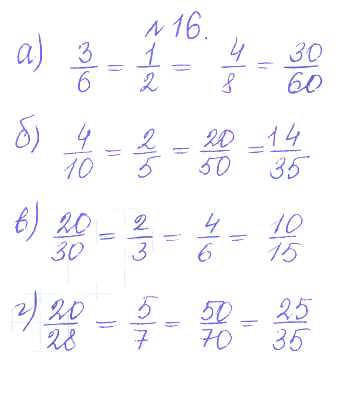 №16.
а) 3/6 = 1/2 = 4/8 = 30/60
б) 4/10 = 2/5 = 20/50 = 14/35
в) 20/30 = 2/3 = 4/6 = 10/15
г) 20/28 = 5/7 = 50/70 = 25/35